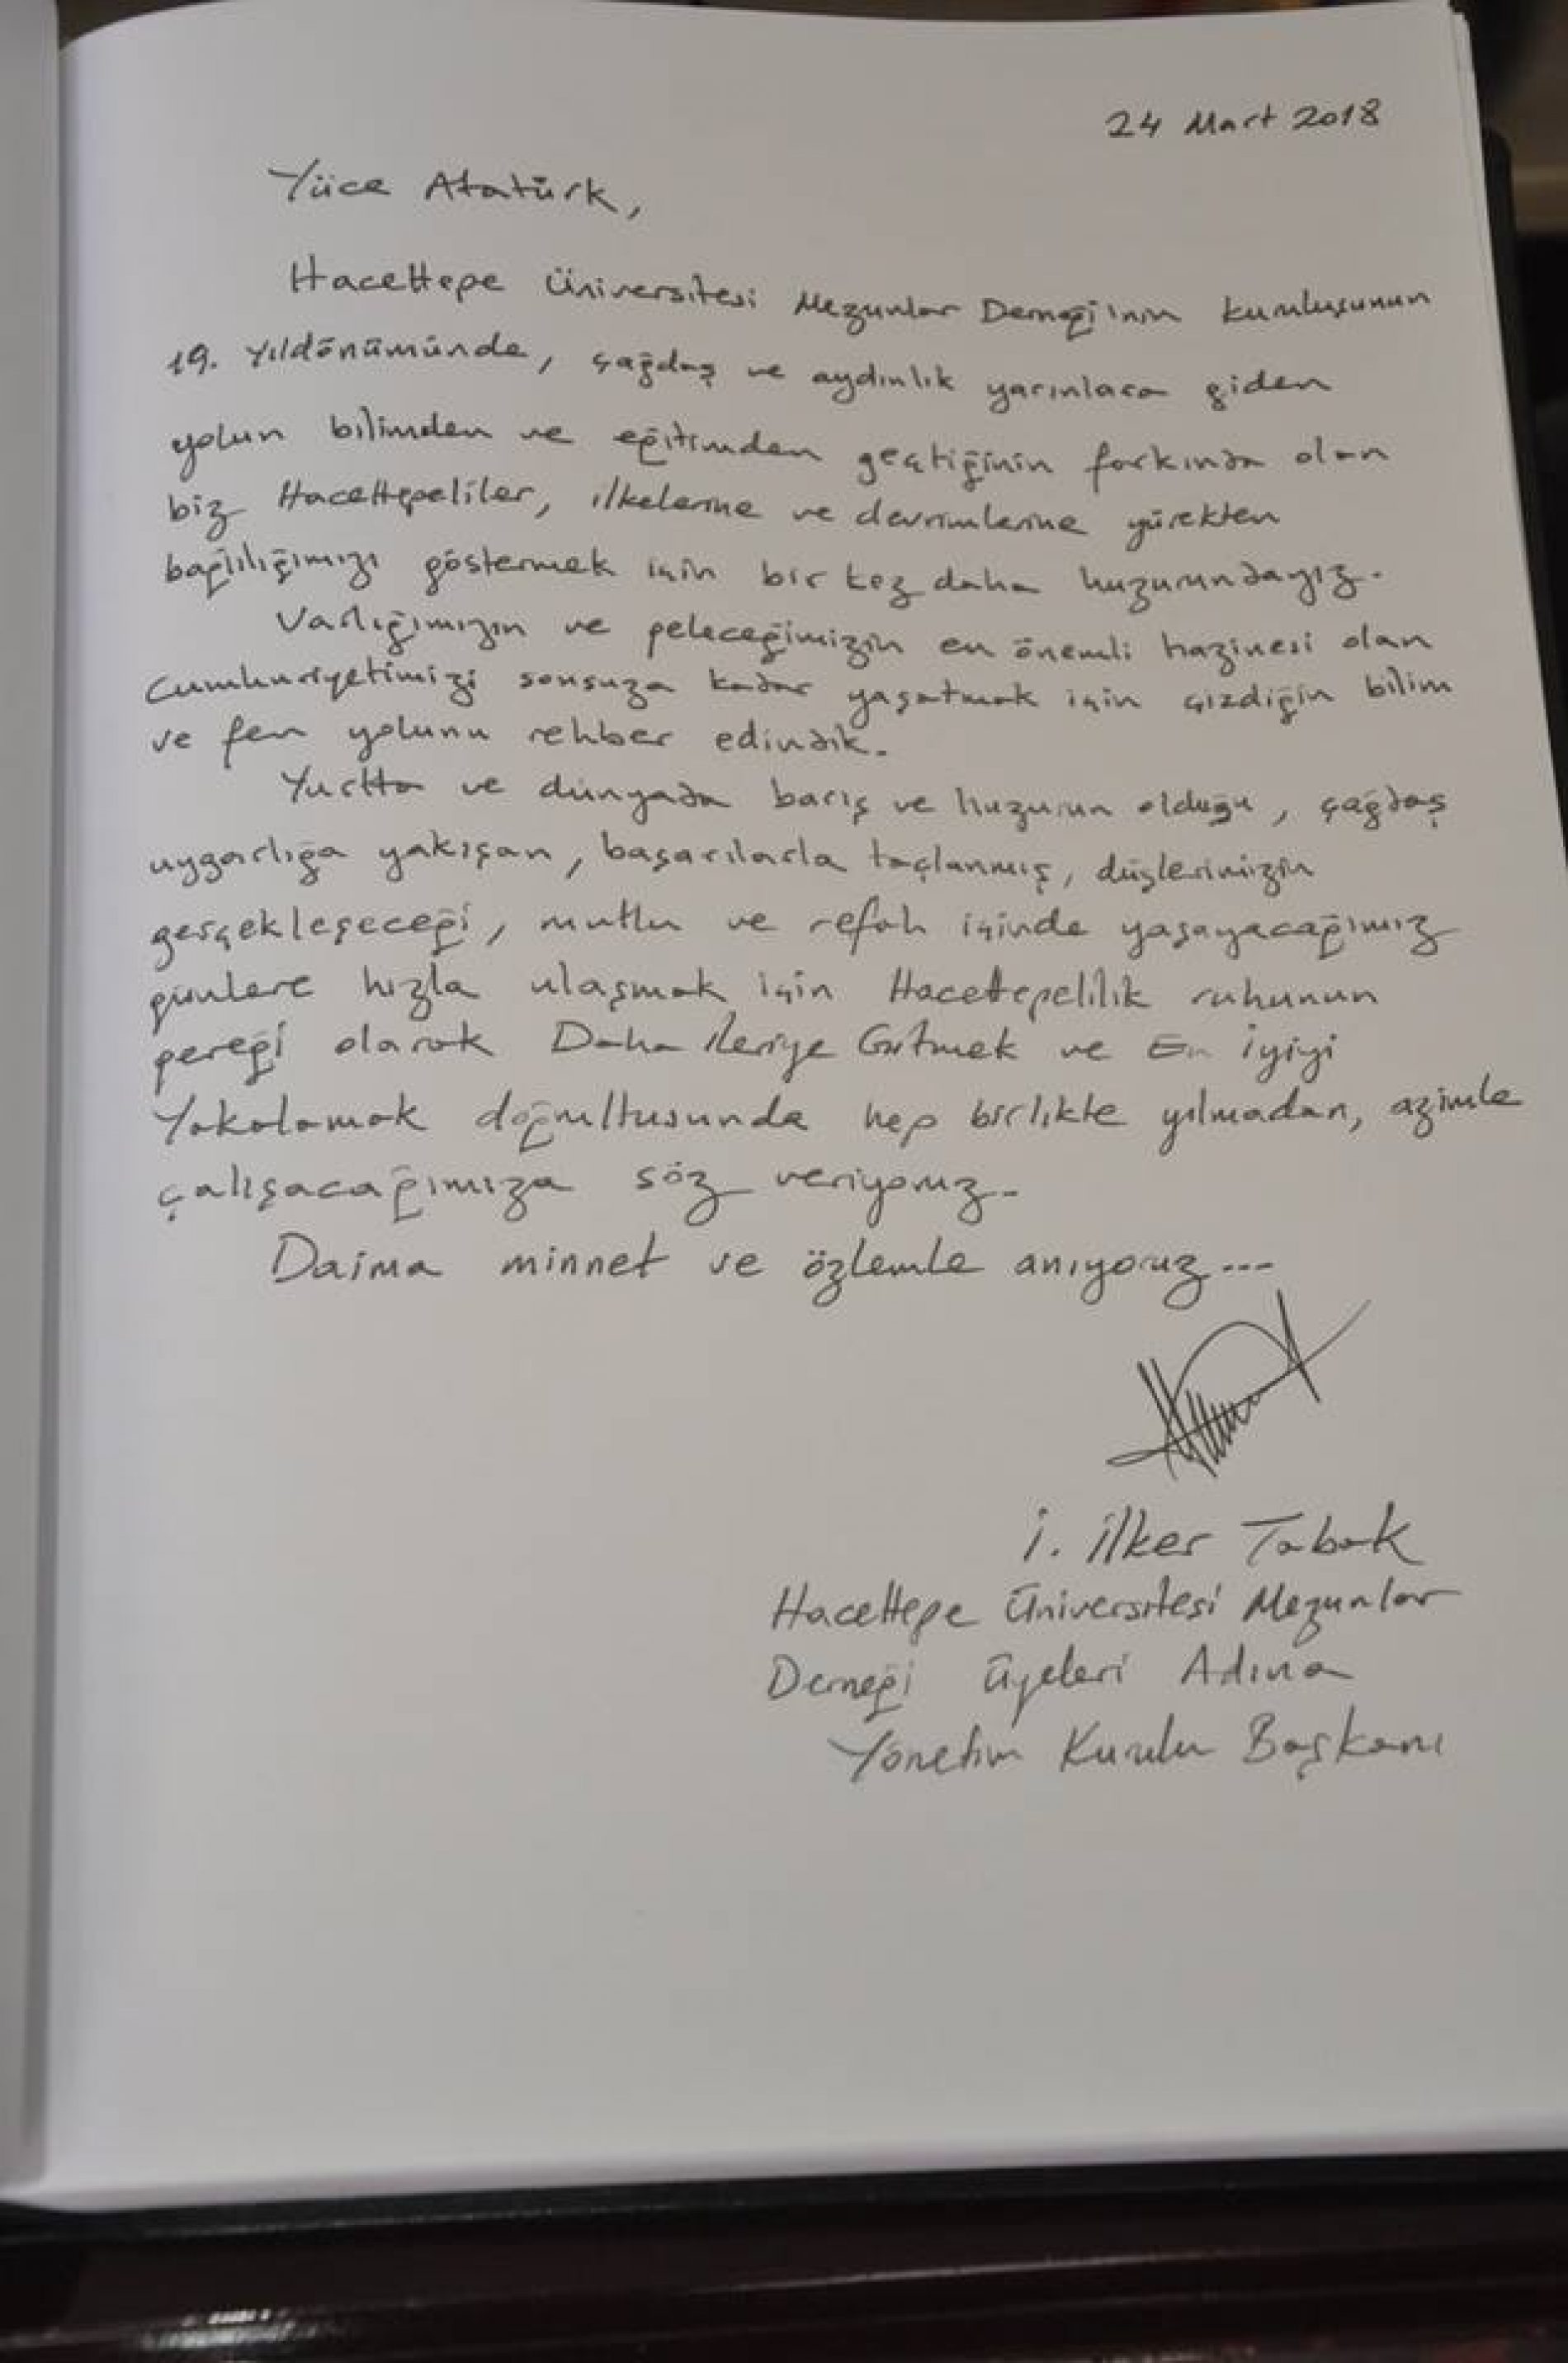 24 Mart 2018
Yüce Atatürk,
Hacettepe Üniversitesi Mezunlar Derneği'nin kuruluşunun
19. Yıldönümünde, çağdaş ve aydınlık yarınlara giden
yolun bilimden ve eğitimden geçtiğinin farkında olan
biz Hacettepeliler, ilkelerine ve devrimlerine yürekten
bağlılığımızı göstermek için bir kez daha huzurundayız.
Varlığımızın ve geleceğimizin en önemli hazinesi olan
Cumhuriyetimizi sonsuza kadar yaşatmak için çizdiğin bilim
ve fen yolunu rehber edindik.
Yurtta ve dünyada barış ve huzurun olduğu, çağdaş
uygarlığa yakışan, başarılarla taçlanmış, düşlerimizin
gerçekleşeceği, mutlu ve refah içinde yaşayacağımız
günlere hızla ulaşmak için Hacettepelilik ruhunun
gereği olarak Daha İleriye Gitmek ve En İyiyi
Yakalamak doğrultusunda hep birlikte yılmadan, azimle
çalışacağımıza söz veriyoruz.
Daima minnet ve özlemle anıyoruz...
İ. İlker Tabak
Hacettepe Üniversitesi Mezunlar
Derneği Üyeleri Adına
Yönetim Kurulu Başkanı